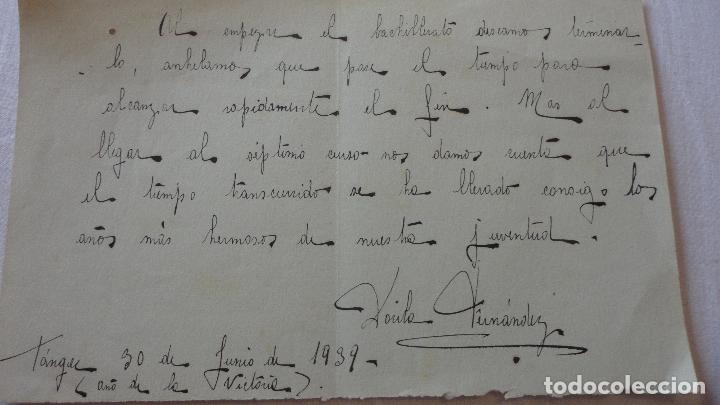 Al empezar el bachillerato deseamos terminar
lo, anhelamos que pase el tiempo para
alcanzar rapidamente el fin. Mas al
llegar al séptimo curso nos damos cuenta que
el tiempo transcurrido se ha llevado consigo los
años más hermosos de nuestra juventud.
Fernández
Tánger 30 de Junio de 1939
(año de la Victoria).
todocoleccion
todocoleccion.net